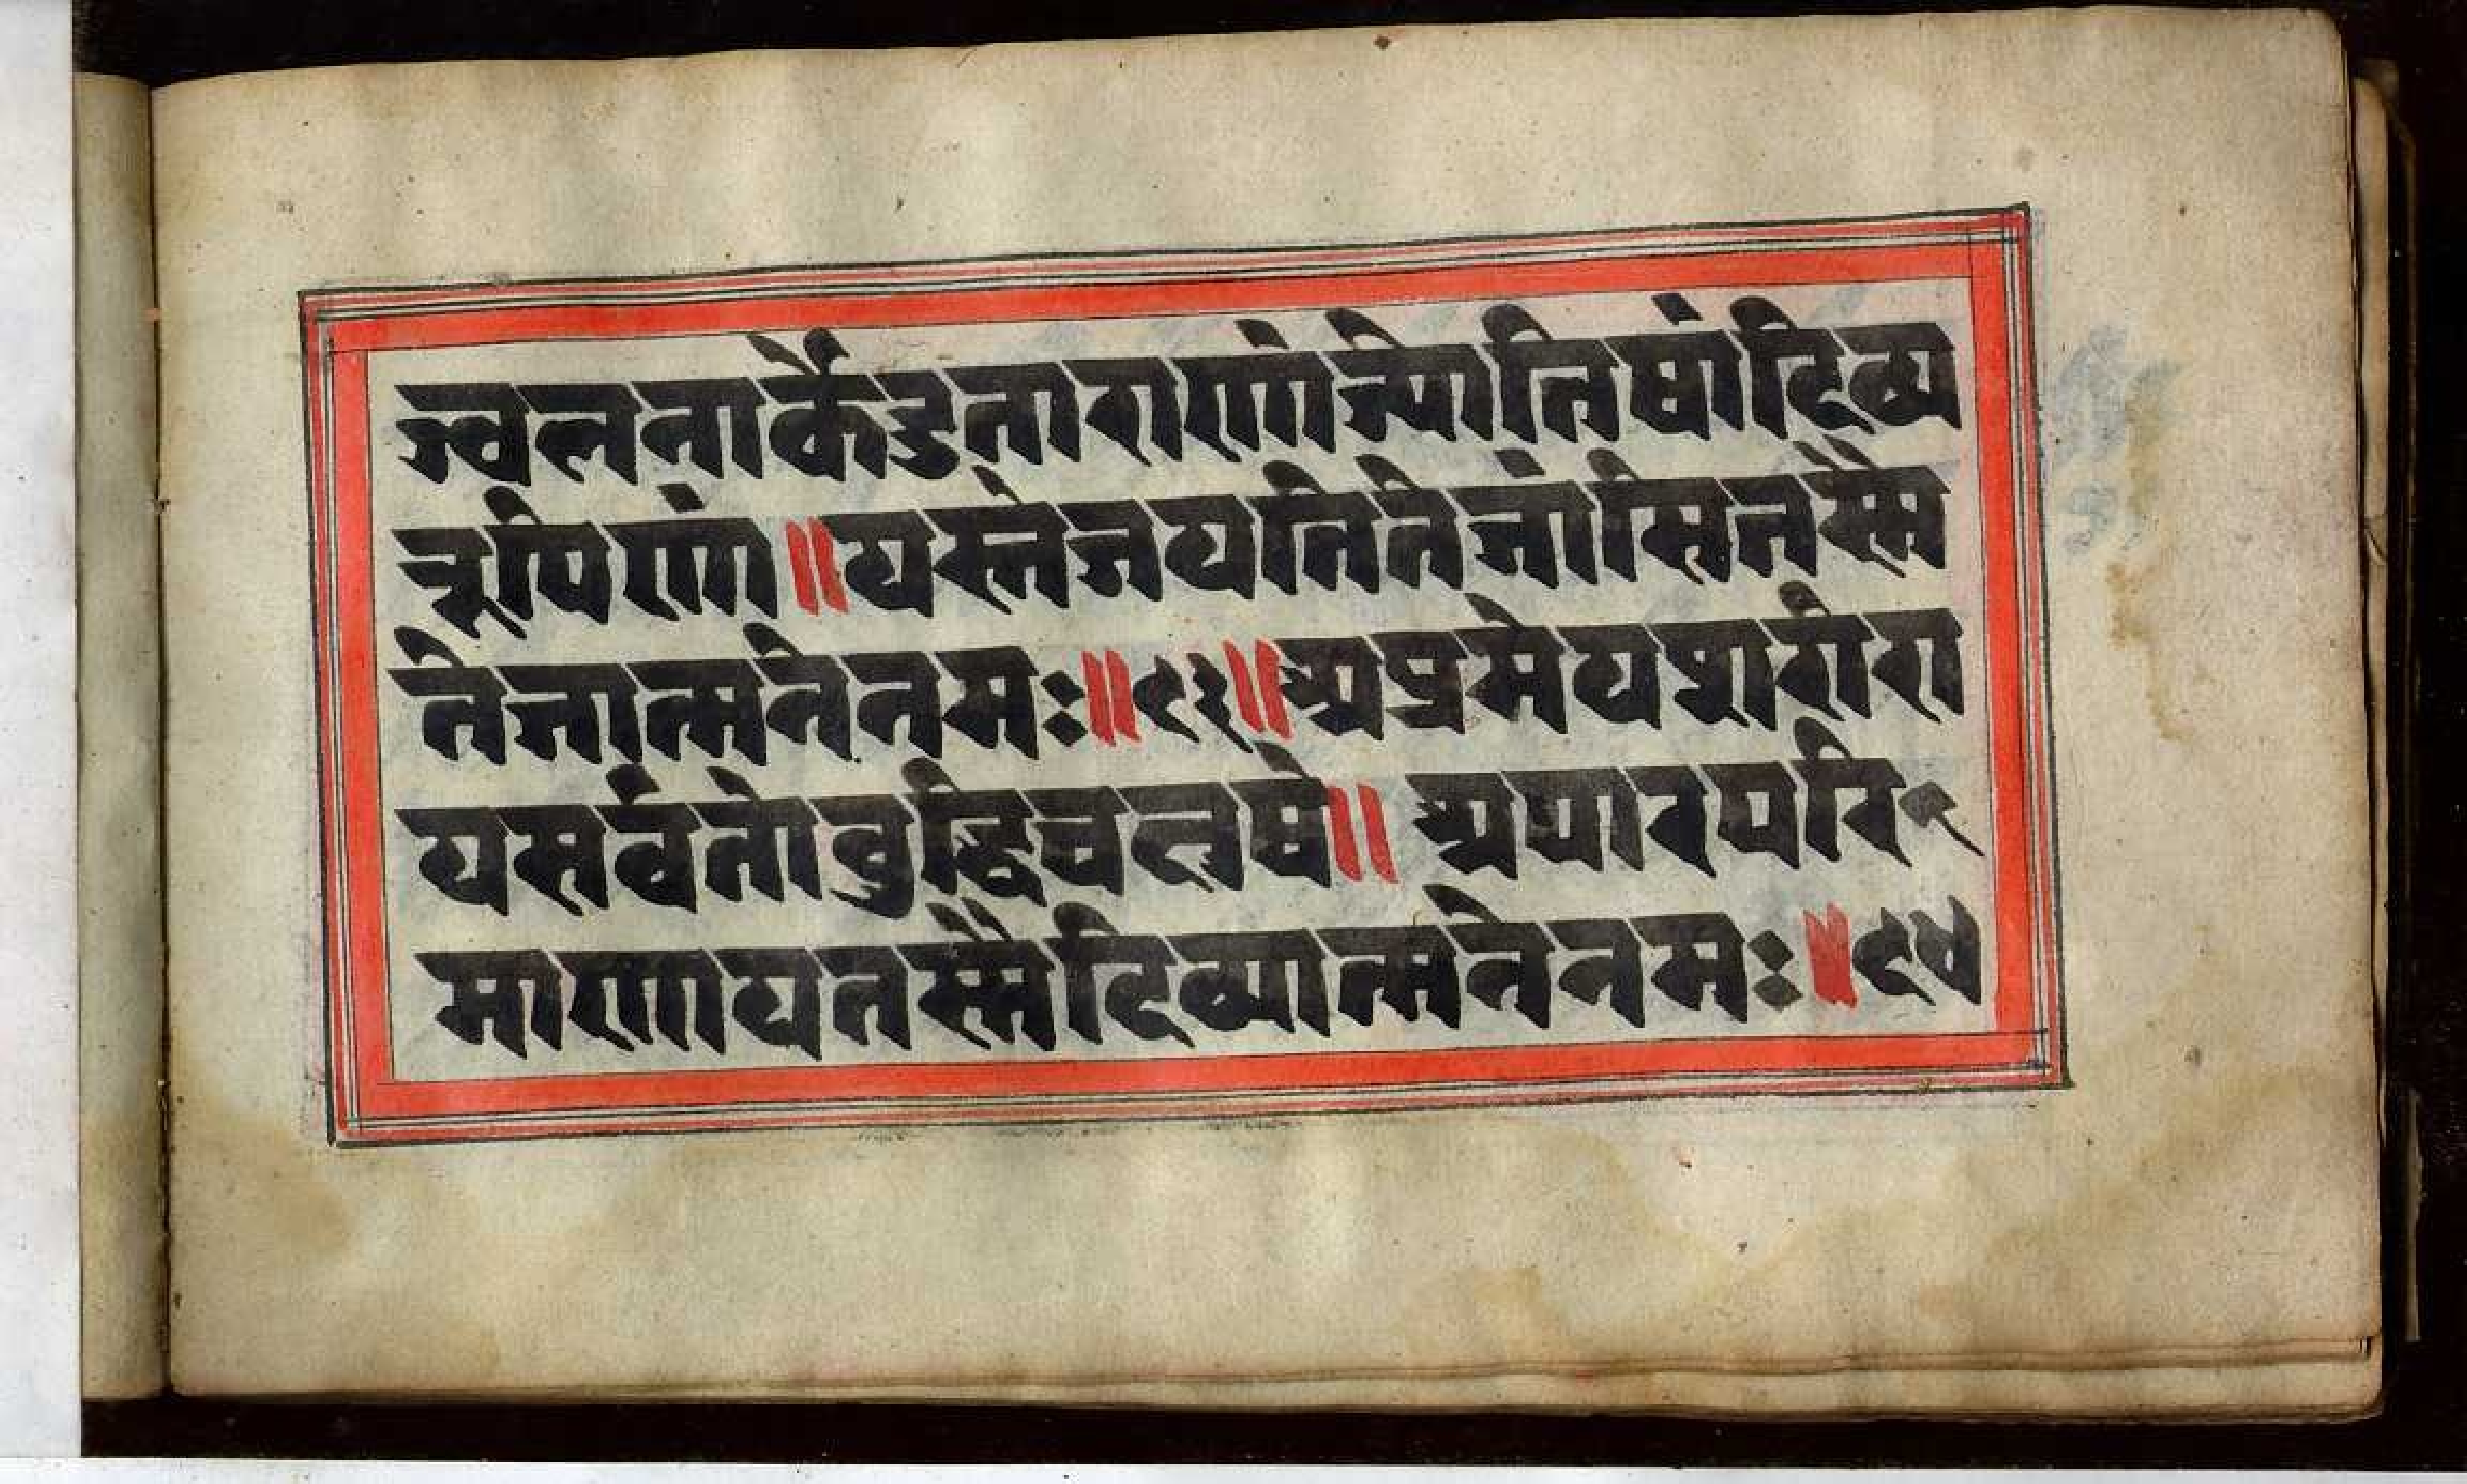 ज्वलनार्केंडुताराणां ज्योतिषां दिव्य
मूर्पिणां ॥ यस्तेजयति तेजांसि तस्मै
तेजात्मने नमः ॥ ९३ ॥ अप्रमेयशरीरा
य सर्वतो बुद्धिचक्षुषे ॥ अपारपरि
माणाय तस्मै दिव्यात्मने नमः ॥ ९४